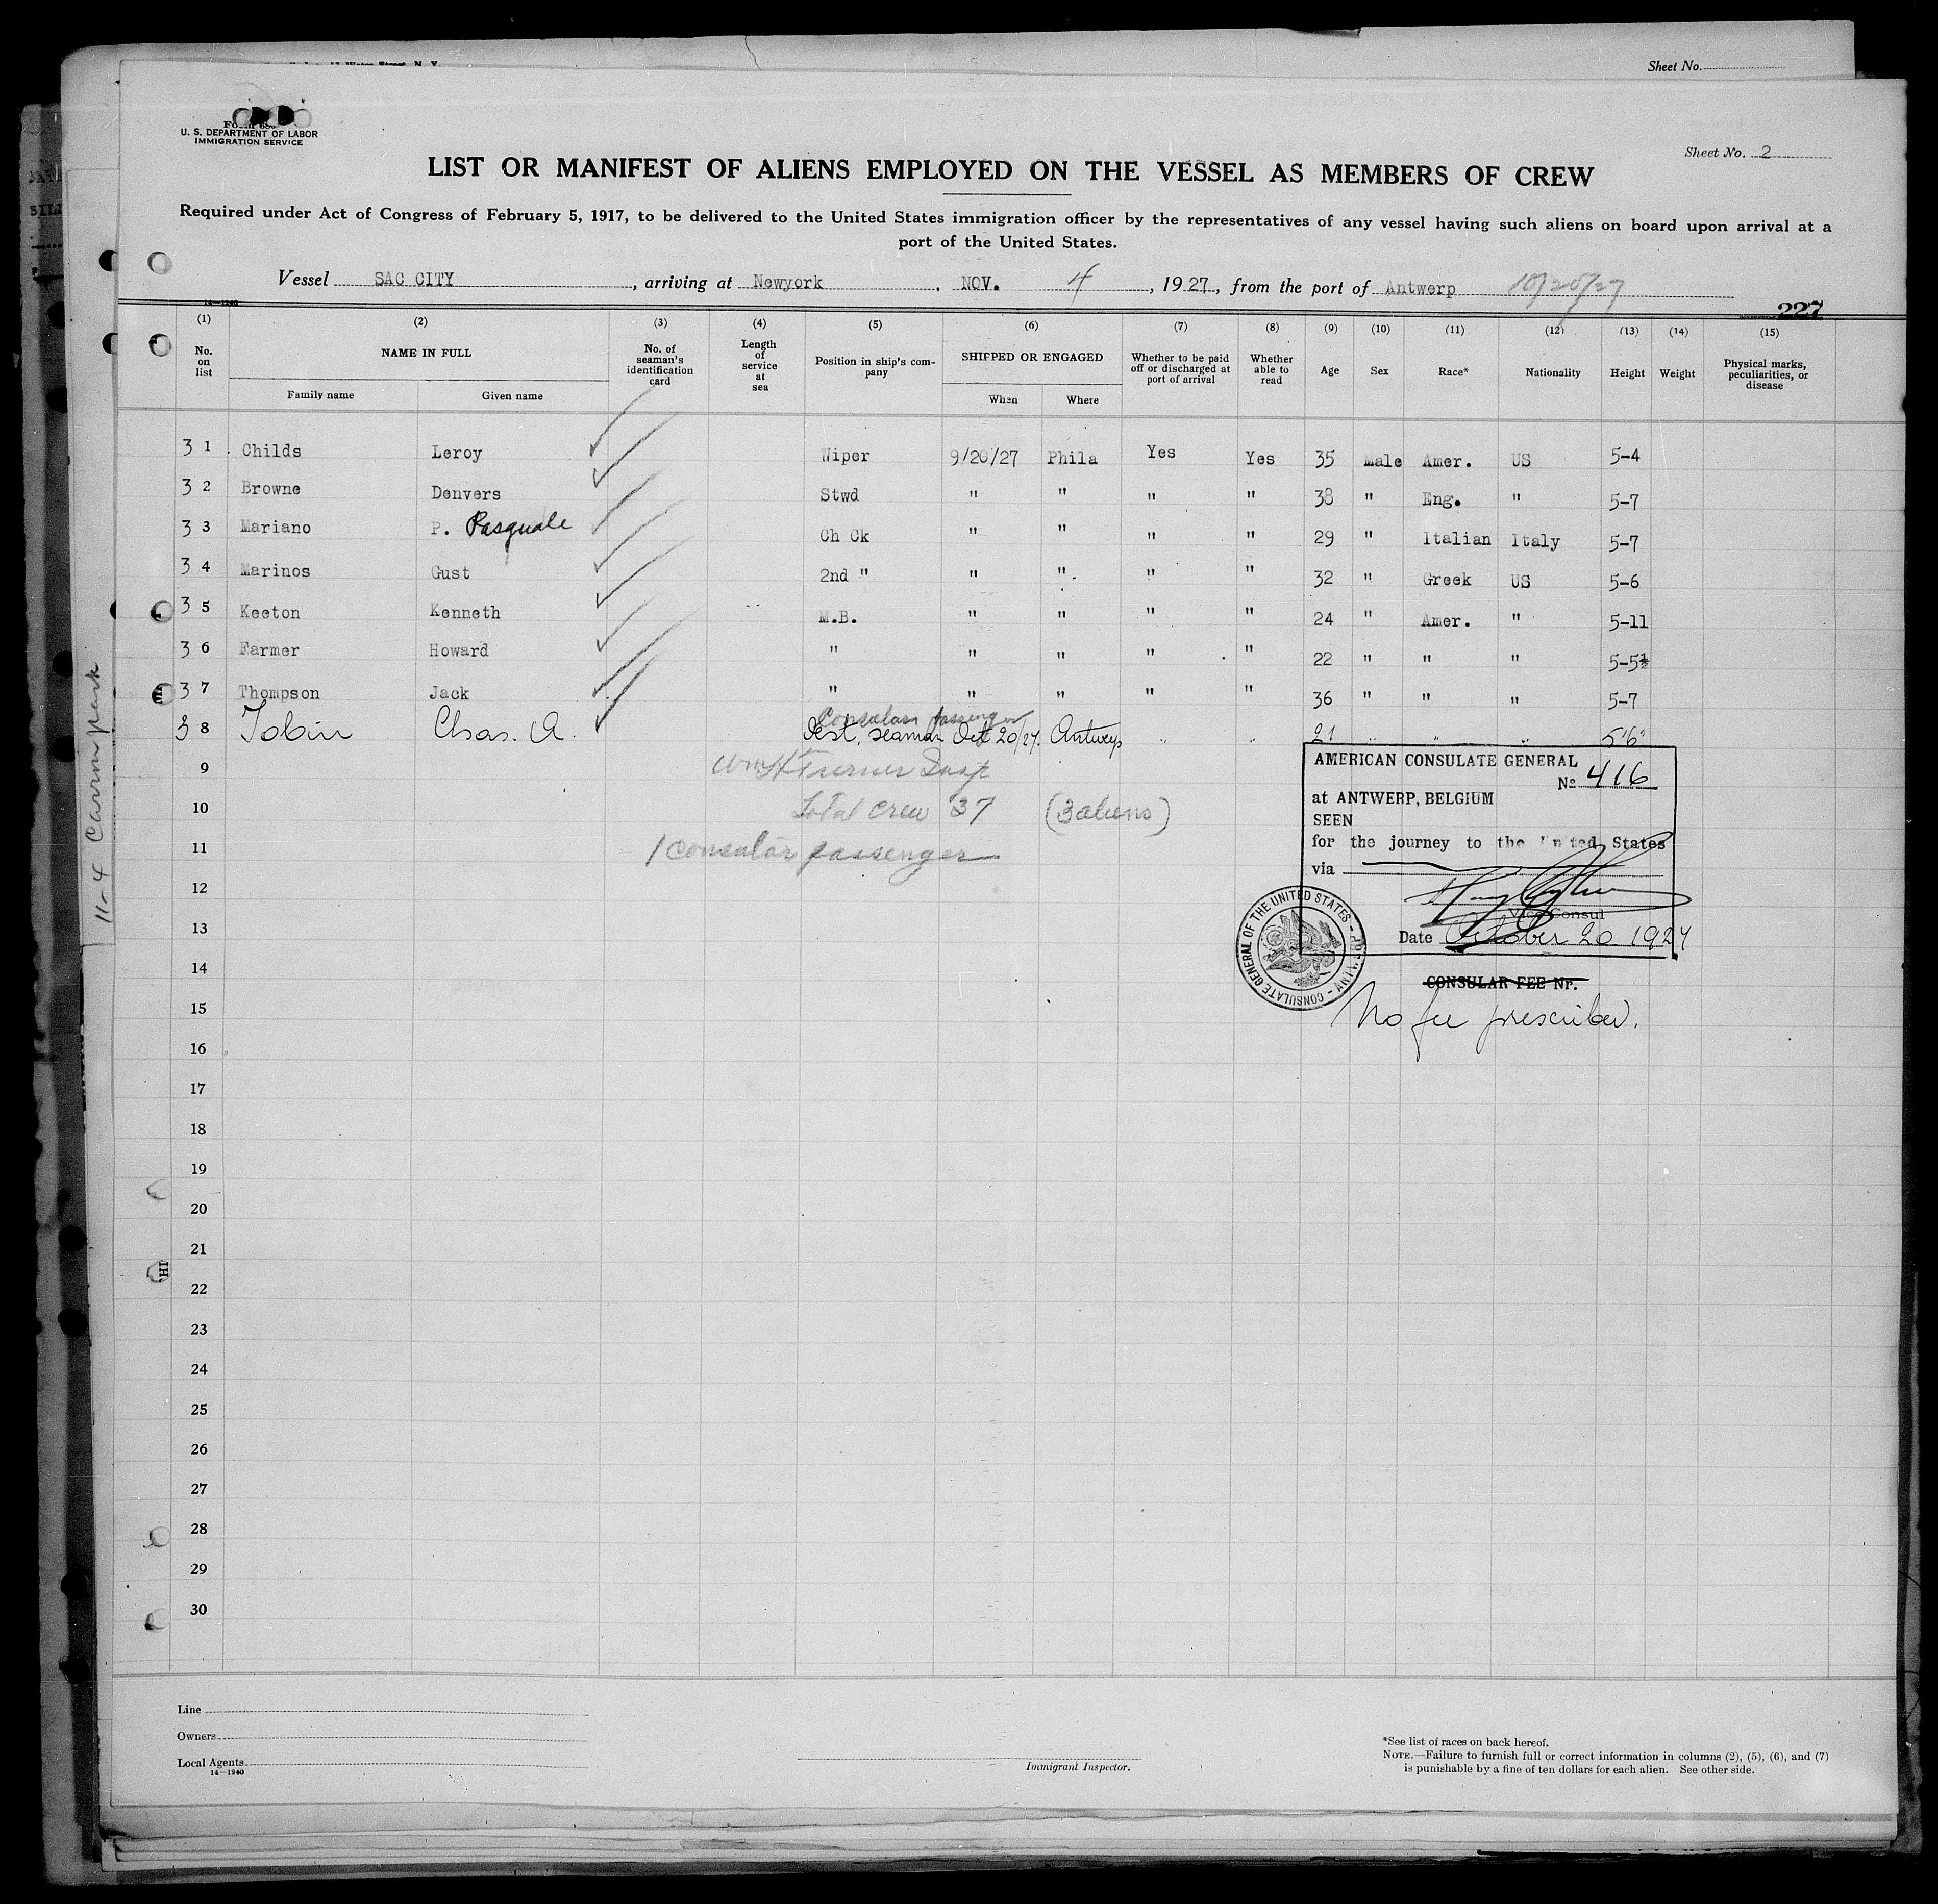 Sheet No.
U. S. DEPARTMENT OF LABOR
IMMIGRATION SERVICE
Sheet No. 2
LIST OR MANIFEST OF ALIENS EMPLOYED ON THE VESSEL AS MEMBERS OF CREW
Required under Act of Congress of February 5, 1917, to be delivered to the United States immigration officer by the representatives of any vessel having such aliens on board upon arrival at a
port of the United States.
Vessel SAC CITY, arriving at Newyork, NOV. 4, 1927, from the port of Antwerp 10/20/27
14—1240
227
(1) (2) (3) (4) (5) (6) (7) (8) (9) (10) (11) (12) (13) (14) (15)
No. on list NAME IN FULL Family name Given name No. of seaman's identification card Length of service at sea Position in ship's company SHIPPED OR ENGAGED When Where Whether to be paid off or discharged at port of arrival Whether able to read Age Sex Race* Nationality Height Weight Physical marks, peculiarities, or disease
3 1 Childs Leroy Wiper 9/20/27 Phila Yes Yes 35 Male Amer. US 5-4
3 2 Browne Denvers Stwd " " " " 38 " Eng. " 5-7
3 3 Mariano P. Pasquale Ch Ck " " " " 29 " Italian Italy 5-7
3 4 Marinos Gust 2nd " " " " " 32 " Greek US 5-6
3 5 Keeton Kenneth M.B. " " " " 24 " Amer. " 5-11
3 6 Farmer Howard " " " " " 22 " " " 5-5½
3 7 Thompson Jack " " " " " 36 " " " 5-7
Consular passenger
3 8 Tobin Chas. A. Dest. seaman Oct 20/27. Antwerp " " 21 " " " 5'6"
9 Wm H Turner Insp
10 Total crew 37 (3 aliens)
11 1 consular passenger
12
13
14
15
16
17
18
19
20
21
22
23
24
25
26
27
28
29
30
AMERICAN CONSULATE GENERAL
No 416
at ANTWERP, BELGIUM
SEEN
for the journey to the United States
via
Vice Consul
Date October 20 1927
CONSULATE GENERAL OF THE UNITED STATES - ANTWERP -
CONSULAR FEE Nr.
No fee prescribed.
11-4
Line
Owners
Local Agents
14—1240
Immigrant Inspector.
*See list of races on back hereof.
NOTE.—Failure to furnish full or correct information in columns (2), (5), (6), and (7)
is punishable by a fine of ten dollars for each alien. See other side.